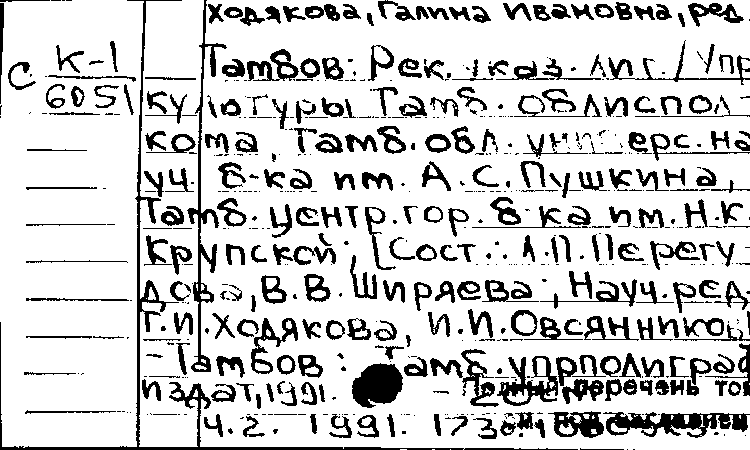 Ходякова, Галина Ивановна, ред.
Тамбов: Рек. указ. лит. / Упр
С К-1
6051
культуры Тамб. облиспол-
кома, Тамб. обл. универс. на
уч. б-ка им. А.С.Пушкина,
Тамб. центр. гор. б-ка им. Н.К.
Крупской; [Сост.: А.П. Перегу
дова, В.В. Ширяева; Науч. ред.
Г.И. Ходякова, И.И. Овсянников
- Тамбов: Тамб. упрполиграф
издат, 1991. - 20 см.
Полный перечень том
см. под заглавием
Ч.2. 1991. 173 с. 1000 экз.